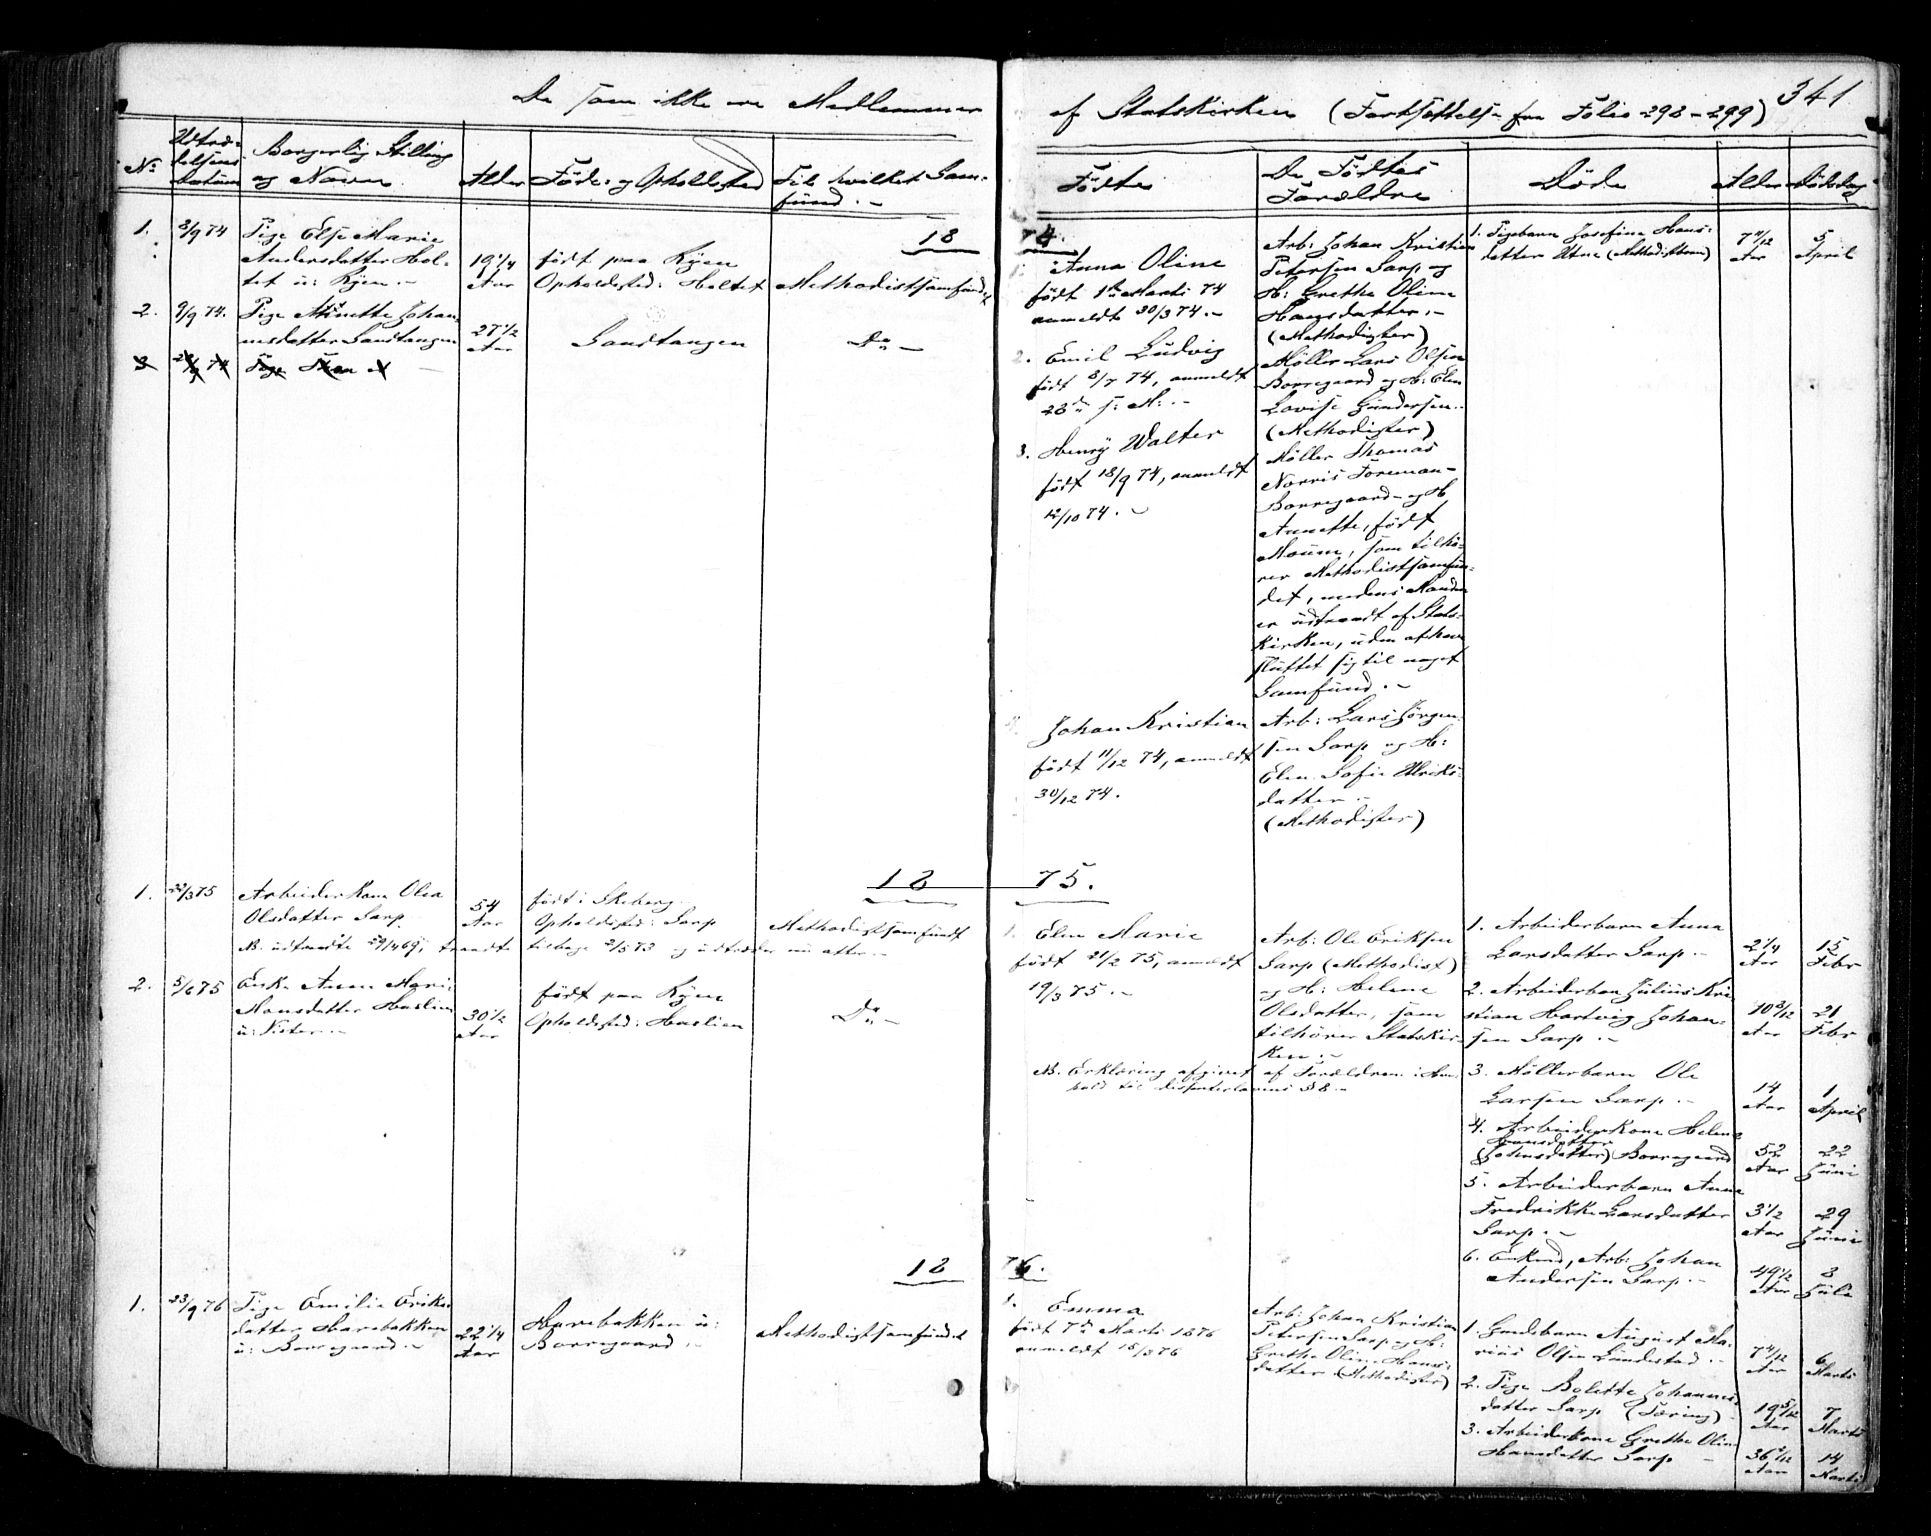 341
De som ikke ere Medlemmer af Statskirken (Fortsættelse fra Folio 298-299)
No
Udtræ-
delsens
Datum
Borgerlig Stilling
og Navn
Alder
Føde- og Opholdssted
Til hvilket Sam-
fund.
1.
8/9 74
Pige Else Marie
Andersdatter Hol-
tet u: Kyen
19 1/4
Aar
født paa Kyen
Opholdssted: Holtet
Methodistsamfundet
2.
9/9 74.
Pige Annette Johan-
nesdatter Sandtangen
27 1/2
Aar
Sandtangen
Do
3
74
Pige
1.
22/3 75
Arbeiderkone Olea
Olsdatter Sarp
54
Aar
født i Skeberg
Opholdssted: Sarp
Methodistsamfundet
NB. udtraadte 29/4 69, traadte tilbage 2/5 73 og udtræder nu atter.
2.
5/6 75
Enke Anne Marie
Hansdatter Haslien
u: Nister
30 1/2
Aar
født paa Kyen
Opholdssted: Haslien
Do
1.
23/9 76
Pige Emilie Eriks-
datter Harebakken
u: Borregaard
22 1/4
Aar
Harebakken u:
Borregaard
Methodistsamfundet
Fødte
De Fødtes
Forældre
Døde
Alder
Dødsdag
18 74.
1.
Anna Oline
født 1ste Marts 74
anmeldt 30/3 74.
Arb: Johan Kristian
Petersen Sarp og
H: Grethe Oline
Hansdatter,
(Methodister)
2. Emil Ludvig
født 8/7 74, anmeldt
28de s: M:
Møller Lars Olsen
Borregaard og H: Elen
Lovise Gundersen
(Methodister)
3. Henry Walter
født 18/9 74, anmeldt
12/10 74.
Møller Thomas
Norris Foreman
Borregaard og H
Annette, født
Moum, som tilhø-
rer Methodistsamfun-
det, medens Manden
er udtraadt af Stats-
kirken, uden at have
sluttet sig til noget
Samfund.
4. Johan Kristian
født 11/12 74, anmeldt
30/12 74.
Arb: Lars Jørgen-
sen Sarp og H:
Elen Sofie Ulriks-
datter
(Methodister)
1. Pigebarn Josefine Hans-
datter Utne (Methodisterne)
7 11/12
Aar
5
April
18 75.
1. Elen Marie
født 21/2 75, anmeldt
19/3 75.
Arb: Ole Eriksen
Sarp (Methodist)
og H: Helene
Olsdatter, som
tilhører Statskir-
ken.
NB. Erklæring afgivet af Forældrene i Hen-
hold til Dissenterlovens § 8.
1. Arbeiderbarn Anna
Larsdatter Sarp.
2 1/4
Aar
15
Febr
2. Arbeiderbarn Julius Kri-
stian Hartvig Johan-
sen Sarp.
10 3/12
Aar
21
Febr
3. Møllerbarn Ole
Larsen Sarp.
14
Aar
1
April
4. Arbeiderkone Helene
Hansdatter
(Johnsdatter) Borregaard
52
Aar
22
Juni
5. Arbeiderbarn Anne
Fredrikke Larsdatter
Sarp.
3 1/2
Aar
29
Juni
6. Enkmd, Arb: Johan
Andersen Sarp.
49 1/2
Aar
3
Juli
18 76.
1.
Emma
født 7de Marts 1876
anmeldt 15/3 76
Arb: Johan Kristian
Petersen Sarp og H:
Grethe Oline Hans-
datter (Methodister)
1. Gaardbarn August Ma-
rius Olsen Lundestad.
7 4/12
Aar
6
Marts
2. Pige Bolette Johannes-
datter Sarp (Tæring)
19 5/12
Aar
7
Marts
3. Arbeiderkone Grethe Oline
Hansdatter Sarp
14
Marts